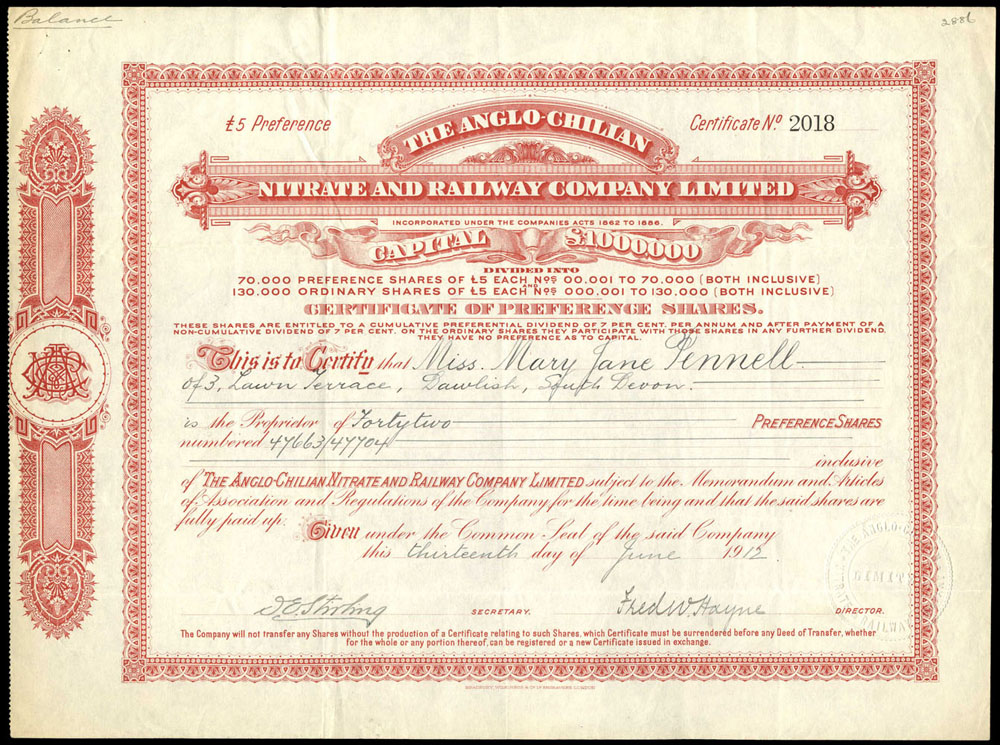 Balance
2886
£5 Preference
Certificate No. 2018
THE ANGLO-CHILIAN
NITRATE AND RAILWAY COMPANY LIMITED
INCORPORATED UNDER THE COMPANIES ACTS 1862 TO 1886.
CAPITAL £1000,000
DIVIDED INTO
70.000 PREFERENCE SHARES OF £5 EACH Nos 00.001 TO 70.000 (BOTH INCLUSIVE)
AND
130.000 ORDINARY SHARES OF £5 EACH Nos 000.001 TO 130,000 (BOTH INCLUSIVE)
CERTIFICATE OF PREFERENCE SHARES.
THESE SHARES ARE ENTITLED TO A CUMULATIVE PREFERENTIAL DIVIDEND OF 7 PER CENT. PER ANNUM AND AFTER PAYMENT OF A
NON-CUMULATIVE DIVIDEND OF 7 PER CENT. ON THE ORDINARY SHARES THEY PARTICIPATE WITH THOSE SHARES IN ANY FURTHER DIVIDEND.
THEY HAVE NO PREFERENCE AS TO CAPITAL.
This is to Certify that Miss. Mary Jane Pennell
of 3, Lawn Terrace, Dawlish, South Devon.
is the Proprietor of Forty two PREFERENCE SHARES
numbered 47663/47704
inclusive
of THE ANGLO-CHILIAN NITRATE AND RAILWAY COMPANY LIMITED subject to the Memorandum and Articles
of Association and Regulations of the Company for the time being and that the said shares are
fully paid up.
Given under the Common Seal of the said Company
this thirteenth day of June 1912
SECRETARY.
Fred W. Hayne
DIRECTOR.
The Company will not transfer any Shares without the production of a Certificate relating to such Shares, which Certificate must be surrendered before any Deed of Transfer, whether
for the whole or any portion thereof, can be registered or a new Certificate issued in exchange.